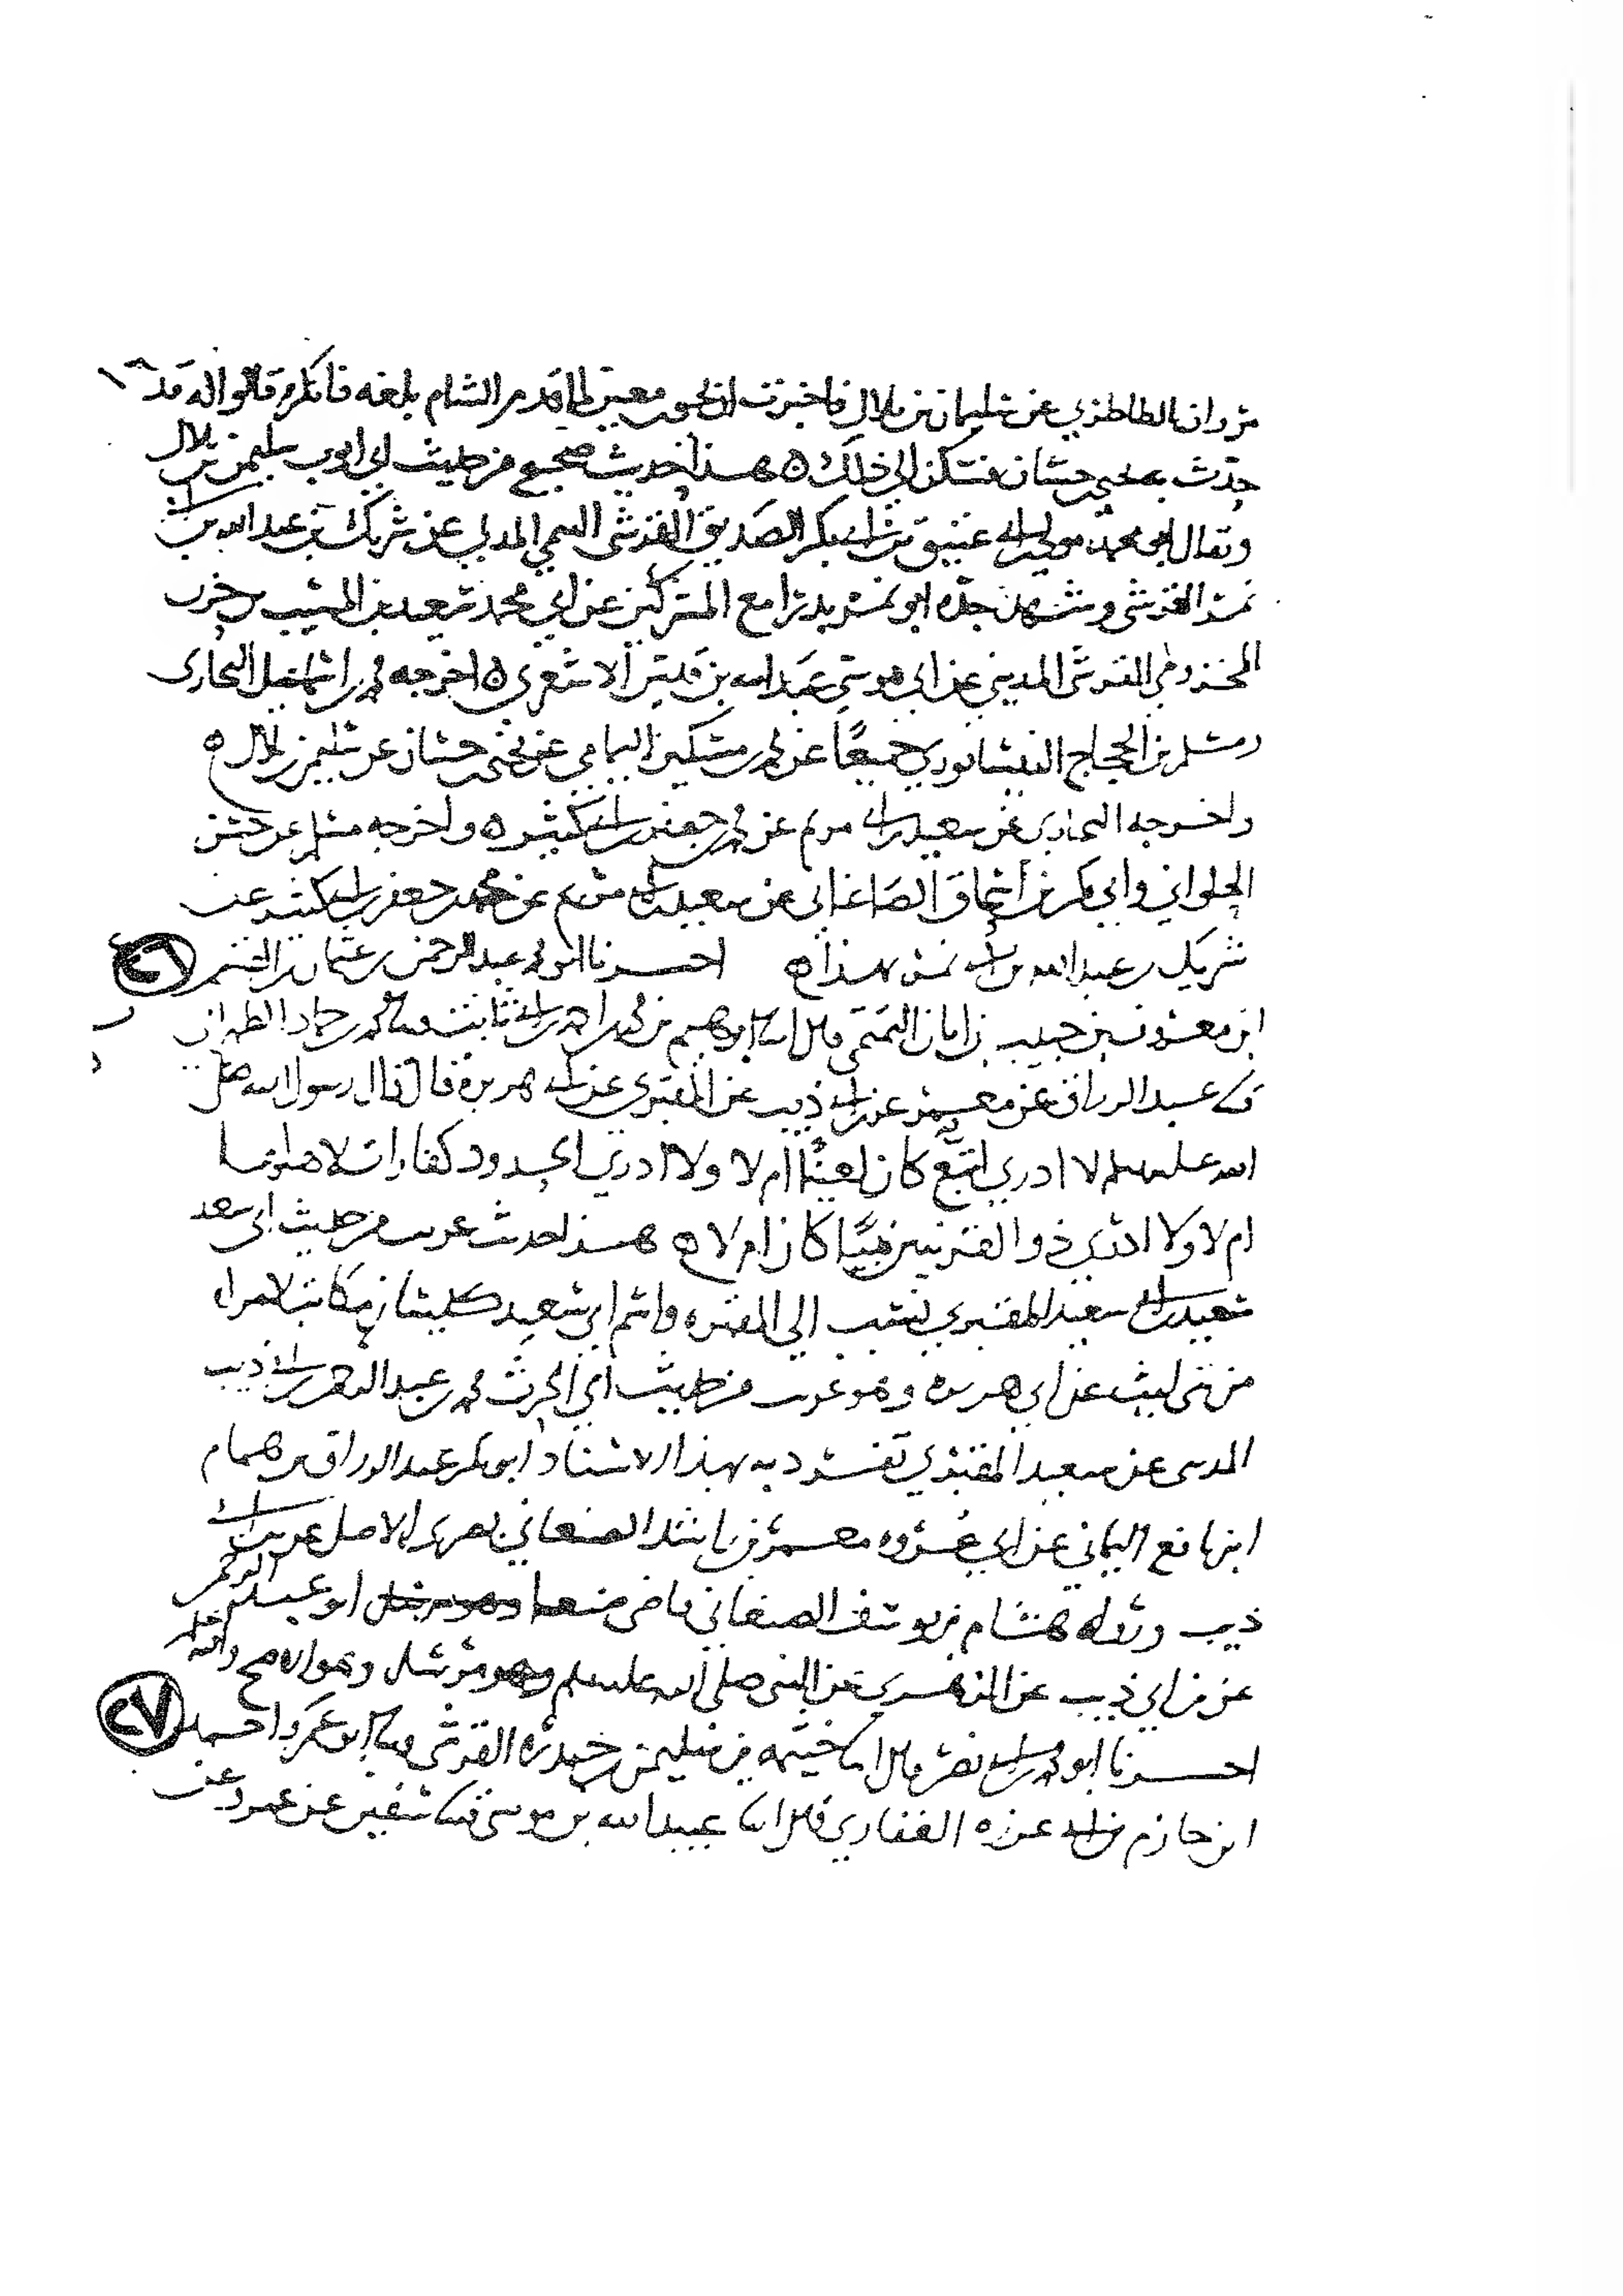 مروان الطاطري عن سليمان بن بلال فاخبرت ان يحيى بن معين لما قدم الشام بلغه فانكره قالوا له قد
حدث به يحيى بن حسان فسكن الى ذلك ه هذا حديث صحيح من حديث ابي ايوب سليمن بن بلال
ويقال ابي محمد مولى ابن ابي عتيق بن ابي بكر الصديق القرشي التيمي المدني عن شريك بن عبد الله بن ابي
نمر القرشي وشهد جده ابو نمر بدرا مع المشركين عن ابي محمد سعيد بن المسيب بن حزن
المخزومي القرشي المديني عن ابي موسى عبد الله بن قيس الاشعري ه اخرجه محمد بن اسماعيل البخاري
ومسلم بن الحجاج النيسابوري جميعا عن محمد بن مسكين اليمامي عن يحيى بن حسان عن سليمن بن بلال ه
واخرجه البخاري عن سعيد بن ابي مريم عن محمد بن جعفر بن ابي كثير ه واخرجه مسلم عن حسن
الحلواني وابي بكر بن اسحاق الصاغاني عن سعيد بن ابي مريم عن محمد بن جعفر بن ابي كثير عن
شريك بن عبد الله بن ابي نمر بهذا ه اخبرنا ابو محمد عبد الرحمن بن عثمان بن القسم ٢٦
ابن معروف بن حبيب بن ابان التميمي قال ابنا ابرهيم بن محمد بن احمد بن ابي ثابت ثنا محمد بن حماد الطهراني
ثنا عبد الرزاق عن معمر عن ابن ابي ذيب عن المقبري عن ابي هريرة قال قال رسول الله صلى
الله عليه وسلم لا ادري اتبع كان لعينا ام لا ولا ادري الحدود كفارات لاهلها
ام لا ولا ادري ذو القرنين نبيا كان ام لا ه هذا حديث غريب من حديث ابي سعد
سعيد بن ابي سعيد المقبري نسب الى المقبره واسم ابي سعيد كيسان مكاتب لامراه
من بني ليث عن ابي هريره وهو غريب من حديث ابي الحرث محمد بن عبد الرحمن بن ابي ذيب
المدني عن سعيد المقبري تفرد به بهذا الاسناد ابو بكر عبد الرزاق بن همام
ابن نافع اليماني عن ابي عروه معمر بن راشد الصنعاني بصري الاصل عن ابن ابي
ذيب ورواه هشام بن يوسف الصنعاني قاضي صنعا ابو عبد الرحمن
عن ابن ابي ذيب عن الزهري عن النبي صلى الله عليه وسلم وهو مرسل وهو الاصح والله اعلم
اخبرنا ابو محمد بن ابي نصر قال ابنا خيثمه بن سليمن بن حيدره القرشي ثنا ابو عمرو احمد ٢٧
ابن حازم بن ابي غرزه الغفاري قال ابنا عبيد الله بن موسى ثنا سفين عن عمرو عن